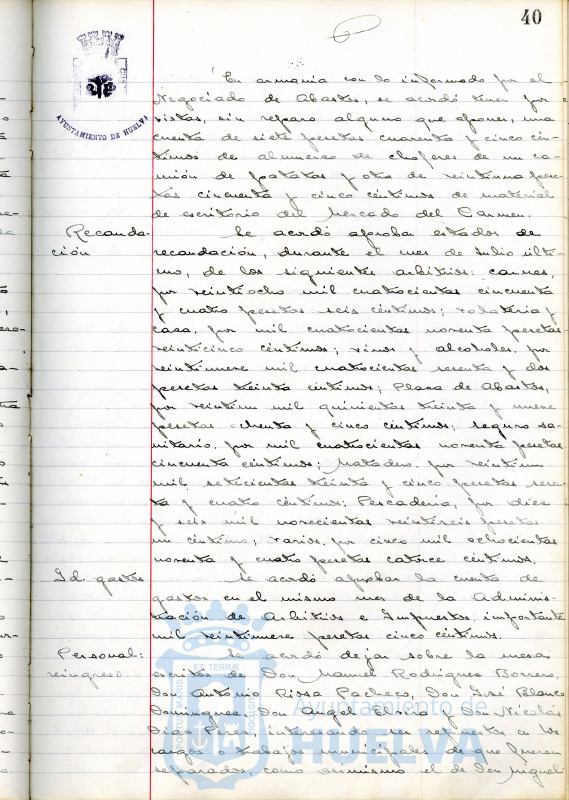 40
AYUNTAMIENTO DE HUELVA
En armonía con lo informado por el
Negociado de Abastos, se acordó tener por
vistas, sin reparo alguno que oponer, una
cuenta de siete pesetas cuarenta y cinco cén-
timos de almuerzo de choferes de un ca-
mión de patatas y otra de veintiuna pese-
tas cincuenta y cinco céntimos de material
de escritorio del Mercado del Carmen.
Recauda-
ción
Se acordó aprobar estados de
recaudación, durante el mes de Julio últi-
mo, de los siguientes arbitrios: carnes,
por veintiocho mil cuatrocientas cincuenta
y cuatro pesetas seis céntimos; volatería y
caza, por mil cuatrocientas noventa pesetas
veinticinco céntimos; vinos y alcoholes, por
veintinueve mil cuatrocientas sesenta y dos
pesetas treinta céntimos; Plaza de Abastos,
por veintiun mil quinientas treinta y nueve
pesetas ochenta y cinco céntimos; seguro sa-
nitario, por mil cuatrocientas noventa pesetas
cincuenta céntimos; Matadero, por veintiun
mil setecientas treinta y cinco pesetas seten-
ta y cuatro céntimos; Pescadería, por diez
y seis mil novecientas veintiseis pesetas
un céntimo; varios, por cinco mil ochocientas
noventa y cuatro pesetas catorce céntimos.
Id. gastos
Se acordó aprobar la cuenta de
gastos en el mismo mes de la Adminis-
tración de Arbitrios e Impuestos, importante
mil veintinueve pesetas cinco céntimos.
Personal:
reingreso
Se acordó dejar sobre la mesa
escritos de Don Manuel Rodríguez Borrero,
Don Antonio Pacheco, Don José Blanco
Domínguez, Don Angel y Don Nicolás
Díaz Pérez, interesando ser repuestos en los
cargos o trabajos municipales de que fueron
separados, como asimismo el de Don Miguel
PORTUS MARIS ET TERRÆ CUSTODIA
Ayuntamiento de
HUELVA